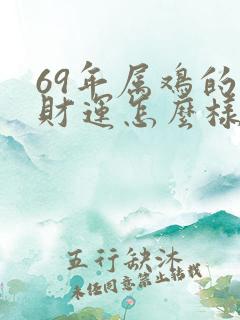 69年属鸡的
财运怎麽样
五行缺沐
未经同意禁止转载